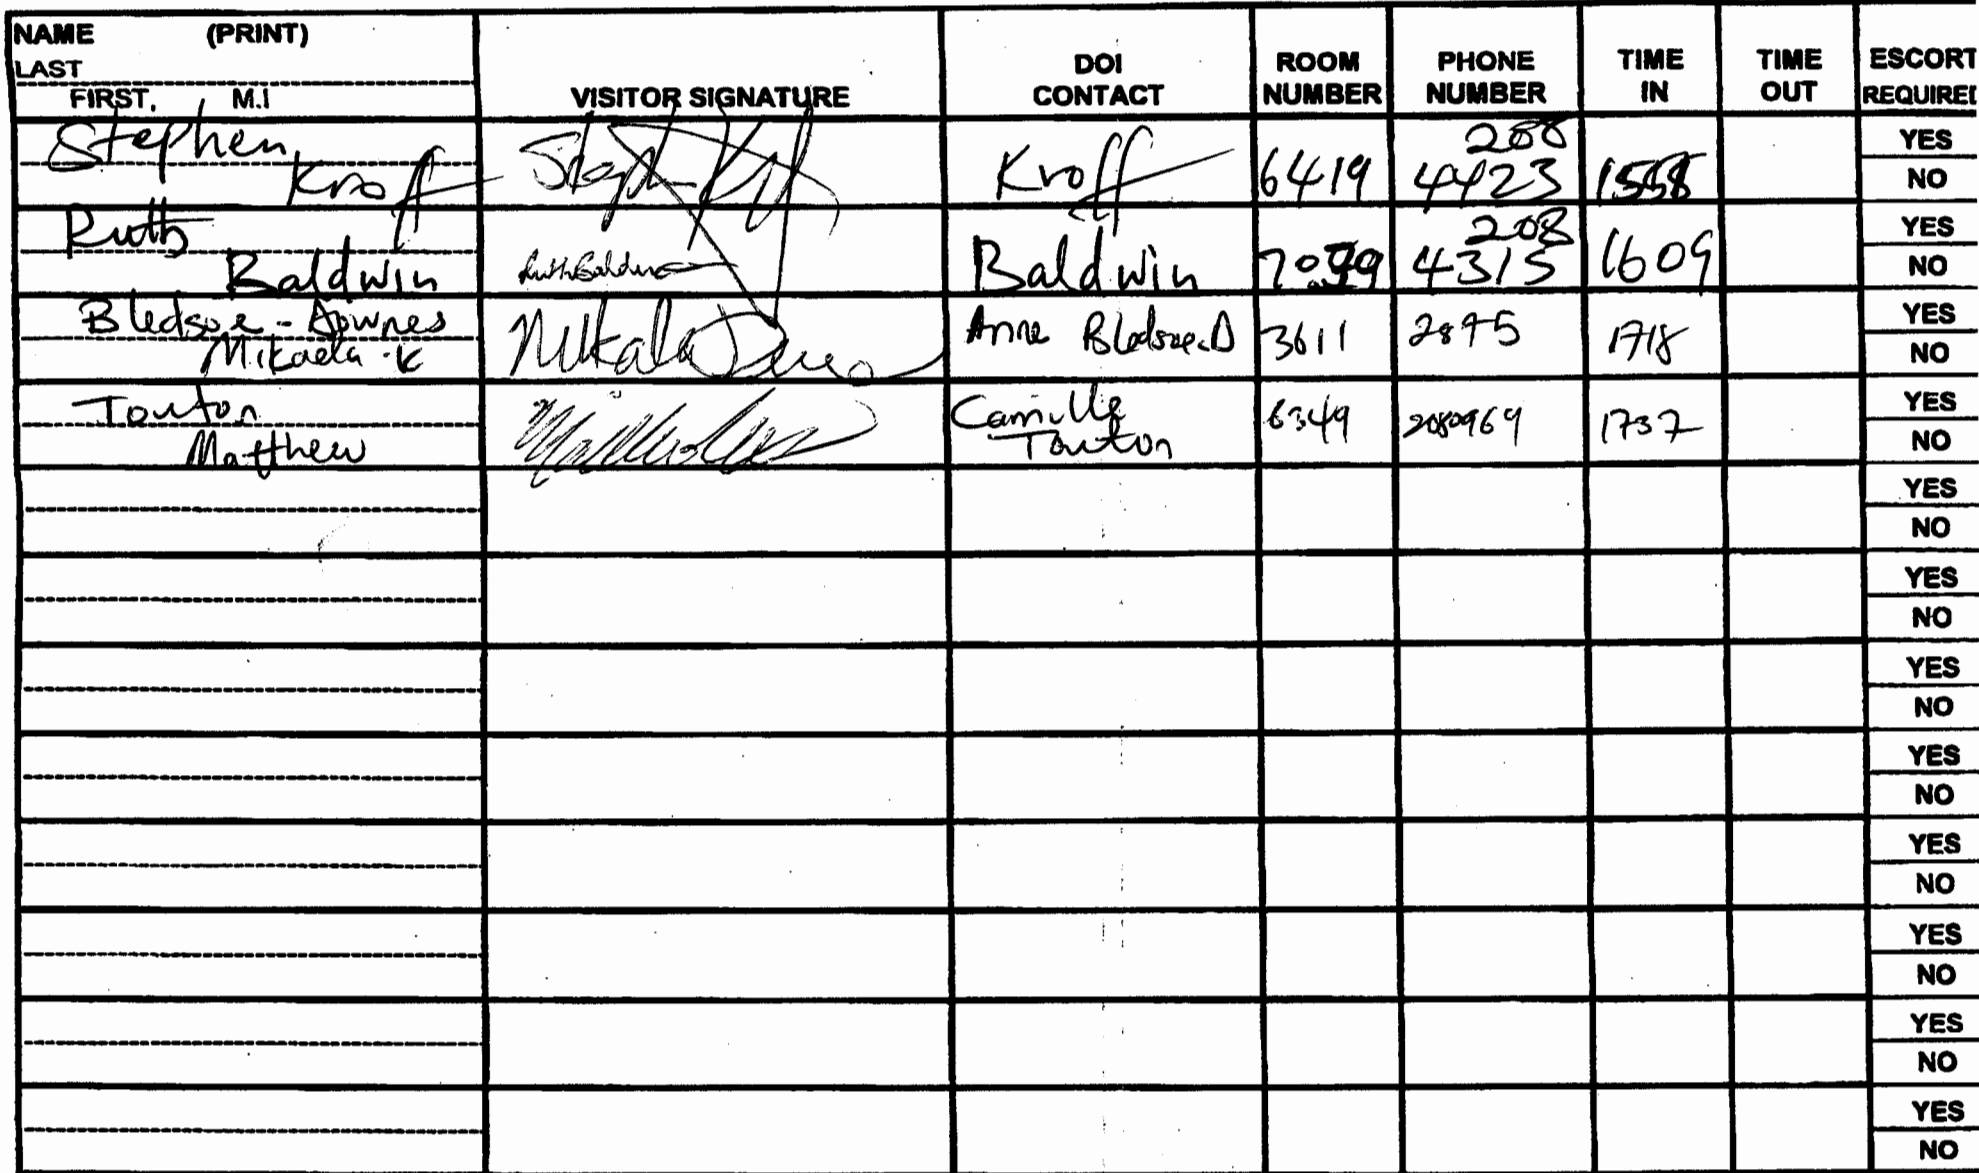 NAME (PRINT)
LAST
FIRST, M.I
VISITOR SIGNATURE
DOI
CONTACT
ROOM
NUMBER
PHONE
NUMBER
TIME
IN
TIME
OUT
ESCORT
REQUIRE
Stephen
Kroff
Kroff
6419
208
4423
1558
YES
NO
Ruth
Baldwin
Ruth Baldwin
Baldwin
208
4315
1609
YES
NO
Bledsoe-Downes
Mikaela K
Anne Bledsoe-D
3611
2875
1718
YES
NO
Touton
Matthew
Camille
Touton
6349
2080969
1737
YES
NO
YES
NO
YES
NO
YES
NO
YES
NO
YES
NO
YES
NO
YES
NO
YES
NO